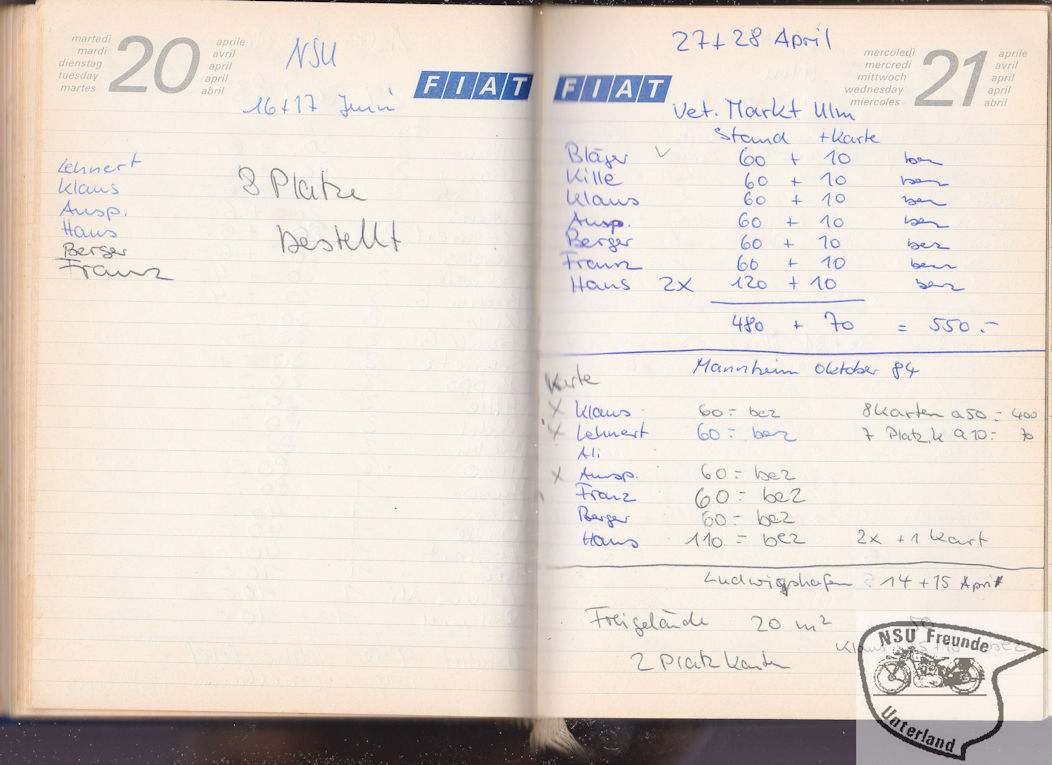 martedì
mardi
dienstag
tuesday
martes
20
aprile
avril
april
april
abril
NSU
FIAT
16+17 Juni
Lehnert
Klaus
Ausp.
Haus
Berger
Franz
8 Plätze
bestellt
27+28 April
FIAT
mercoledì
mercredi
mittwoch
wednesday
miercoles
21
aprile
avril
april
april
abril
Vet. Markt Ulm
Stand + Karte
Bläser ✓ 60 + 10 bez
Kille 60 + 10 bez
Klaus 60 + 10 bez
Ausp. 60 + 10 bez
Berger 60 + 10 bez
Franz 60 + 10 bez
Haus 2x 120 + 10 bez
480 + 70 = 550.-
Mannheim Oktober 84
Karte
x Klaus 60.- bez 8 Karten a 50.- 400
x Lehnert 60.- bez 7 Platzk a 10.- 70
Ali
x Ausp. 60.- bez
Franz 60.- bez
Berger 60.- bez
Haus 110.- bez 2x +1 Kart
Ludwigshafen 14+15 April
Freigelände 20 m²
2 Platzkarten
NSU Freunde
Unterland